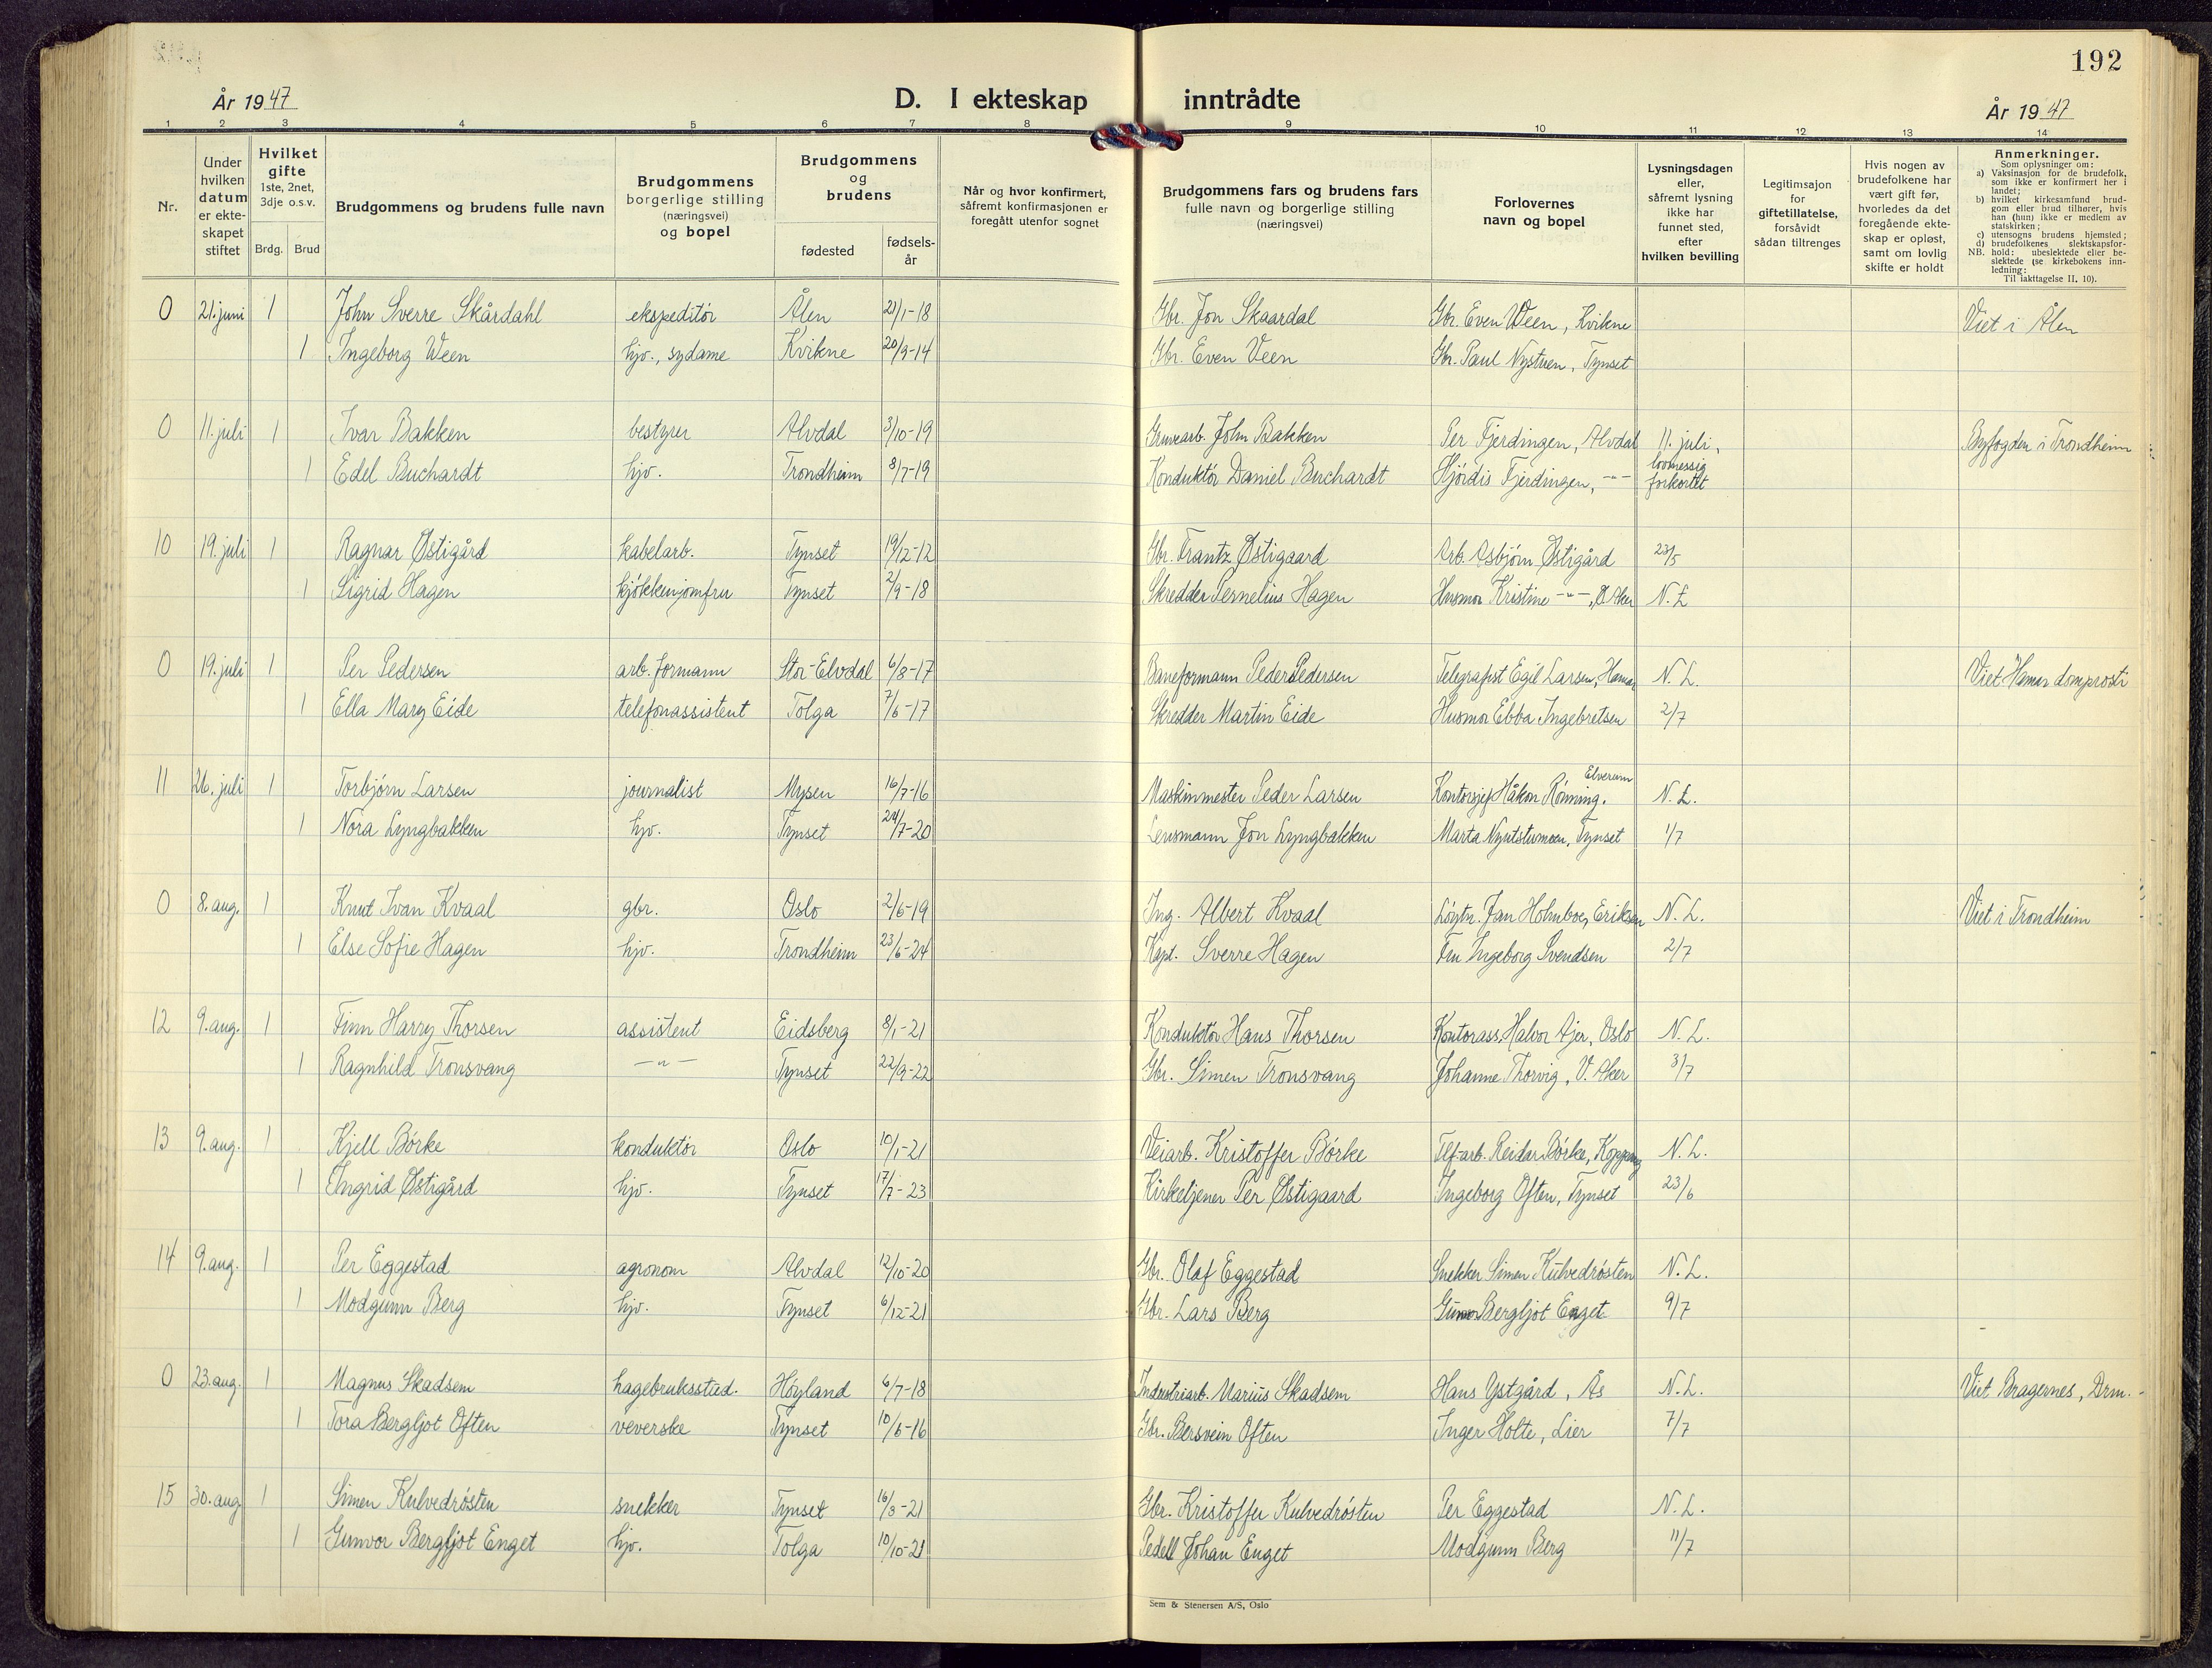 192
År 1947
D. I ekteskap inntrådte
År 1947
1 2 3 4 5 6 7 8 9 10 11 12 13 14
Nr.
Under hvilken datum er ekteskapet stiftet
Hvilket gifte 1ste, 2net, 3dje o.s.v.
Brdg. Brud
Brudgommens og brudens fulle navn
Brudgommens borgerlige stilling (næringsvei) og bopel
Brudgommens og brudens
fødested
fødselsår
Når og hvor konfirmert, såfremt konfirmasjonen er foregått utenfor sognet
Brudgommens fars og brudens fars fulle navn og borgerlige stilling (næringsvei)
Forlovernes navn og bopel
Lysningsdagen eller, såfremt lysning ikke har funnet sted, efter hvilken bevilling
Legitimsajon for giftetillatelse, forsåvidt sådan tiltrenges
Hvis nogen av brudefolkene har vært gift før, hvorledes da det foregående ekteskap er opløst, samt om lovlig skifte er holdt
Anmerkninger.
Som oplysninger om:
a) Vaksinasjon for de brudefolk, som ikke er konfirmert her i landet;
b) hvilket kirkesamfund brudgom eller brud tilhører, hvis han (hun) ikke er medlem av statskirken;
c) utensogns brudens hjemsted;
d) brudefolkenes slektskapsforhold: ubeslektede eller beslektede (se kirkebokens innledning:
NB. Til iakttagelse II, 10).
0 21. juni 1 John Sverre Skårdahl ekspeditør Ålen 21/1-18 Gbr. Jon Skaardal Gbr. Even Ween, Kvikne Viet i Ålen
1 Ingeborg Ween hjv., sydame Kvikne 20/9-14 Gbr. Even Veen Gbr. Paul Nystuen, Tynset
0 11. juli 1 Ivar Bakken bestyrer Alvdal 3/10-19 Gruvearb. John Bakken Per Fjerdingen, Alvdal 11. juli, Byfogden i Trondheim
1 Edel Buchardt hjv. Trondheim 8/7-19 Konduktör Daniel Buchardt Hjördis Fjerdingen, -"- lovmessig forkortet
10 19. juli 1 Ragnar Østigård kabelarb. Tynset 19/12-12 Gbr. Frantz Østigaard Arb. Asbjörn Østigård 23/5
1 Sigrid Hagen kjökkenjomfru Tynset 2/9-18 Skredder Pernelius Hagen Husmor Kristine -"-, Ø Aker N.L
0 19. juli 1 Per Pedersen arb.formann Stor-Elvdal 6/8-17 Baneformann Peder Pedersen Telegrafist Egil Larsen, Hamar N.L. Viet Hamar domprosti
1 Ella Mary Eide telefonassistent Tolga 7/6-17 Skredder Martin Eide Husmor Ebba Ingebretsen 2/7
11 26. juli 1 Torbjørn Larsen journalist Mysen 16/7-16 Maskinmester Peder Larsen Kontorsjef Håkon Rönning, Elverum N.L.
1 Nora Lyngbakken hjv. Tynset 24/7-20 Lensmann Jon Lyngbakken Marta Nyutstumoen, Tynset 1/7
0 8. aug. 1 Knut Ivan Kvaal gbr. Oslo 2/6-19 Ing. Albert Kvaal Löytn. Jan Holmboe, Eriksen N.L. Viet i Trondheim
1 Else Sofie Hagen hjv. Trondheim 23/6-24 Kapt. Sverre Hagen Fru Ingeborg Svendsen 2/7
12 9. aug. 1 Finn Harry Thorsen assistent Eidsberg 8/1-21 Konduktör Hans Thorsen Kontorass. Halvor Ajer, Oslo N.L.
1 Ragnhild Tronsvang -"- Tynset 22/9-22 Gbr. Simen Tronsvang Johanne Thorvig, V. Aker 3/7
13 9. aug. 1 Kjell Börke konduktör Oslo 10/1-21 Veiarb. Kristoffer Börke Tlf-arb. Reidar Börke, Koppang N.L.
1 Ingrid Østigård hjv. Tynset 17/7-23 Kirketjener Per Østigaard Ingeborg Often, Tynset 23/6
14 9. aug. 1 Per Eggestad agronom Alvdal 12/10-20 Gbr. Olaf Eggestad Snekker Simen Kulvedrösten N.L.
1 Modgunn Berg hjv. Tynset 6/12-21 Gbr. Lars Berg Gunvor Bergljot Enget 9/7
0 23. aug. 1 Magnus Skadsem hagebruksstud. Höyland 6/7-18 Industriarb. Marius Skadsem Hans Ystgård, Ås N.L. Viet Bragernes, Drm.
1 Tora Bergljot Often veverske Tynset 10/6-16 Gbr. Bersvein Often Inger Holte, Lier 7/7
15 30. aug 1 Simen Kulvedrösten snekker Tynset 16/3-21 Gbr. Kristoffer Kulvedrösten Per Eggestad N.L.
1 Gunvor Bergljot Enget hjv. Tolga 10/10-21 Pedell Johan Enget Modgunn Berg 11/7
Sem & Stenersen A/S, Oslo